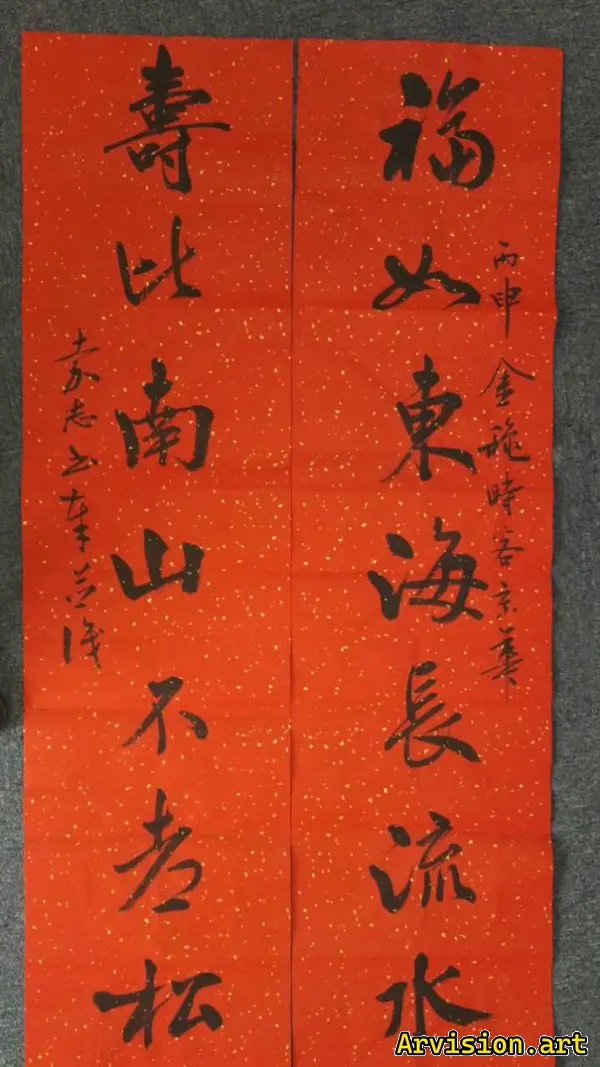 丙申金穐時客京華
福如東海長流水
壽比南山不老松
志